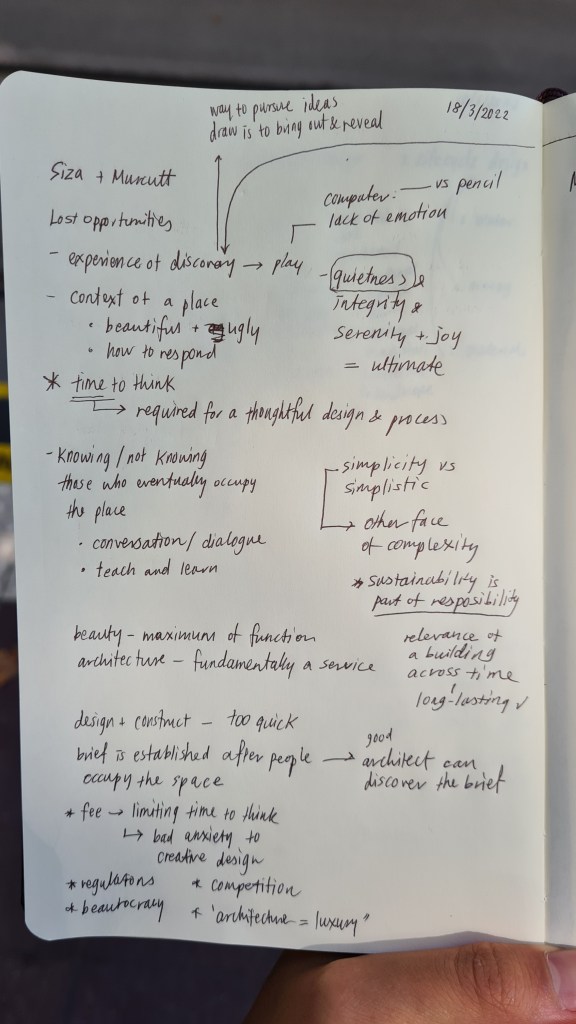 way to pursue ideas
draw is to bring out & reveal
18/3/2022
Siza + Murcutt
Lost opportunities
- experience of discovery → play
computer: — vs pencil
lack of emotion
- context of a place
• beautiful + ugly
• how to respond
- quietness &
integrity &
serenity + joy
= ultimate
* time to think
→ required for a thoughtful design & process
- Knowing / not knowing
those who eventually occupy
the place
• conversation / dialogue
• teach and learn
simplicity vs
simplistic
→ other face
of complexity
* sustainability is
part of resposibility
beauty - maximum of function
architecture - fundamentally a service
relevance of
a building
across time
long-lasting ✓
design + construct - too quick
brief is established after people →
occupy the space
good
architect can
discover the brief
* fee → limiting time to think
↳ bad anxiety to
creative design
* regulations
* competition
* beautocracy
* 'architecture = luxury"